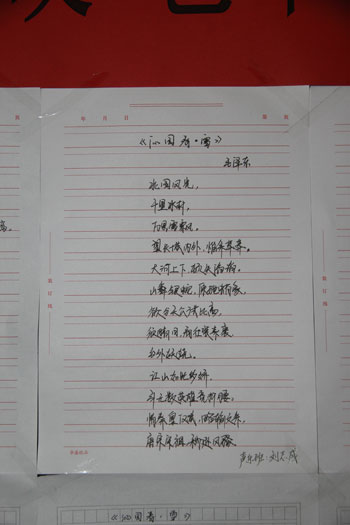 年 月 日
第 页
《沁园春·雪》
毛泽东
北国风光，
千里冰封，
万里雪飘。
望长城内外，惟余莽莽。
大河上下，顿失滔滔。
山舞银蛇，原驰蜡象，
欲与天公试比高。
须晴日，看红装素裹
分外妖娆。
江山如此多娇
引无数英雄竞折腰
惜秦皇汉武，略输文采，
唐宗宋祖，稍逊风骚
声乐班
装订线
《沁园春·雪》